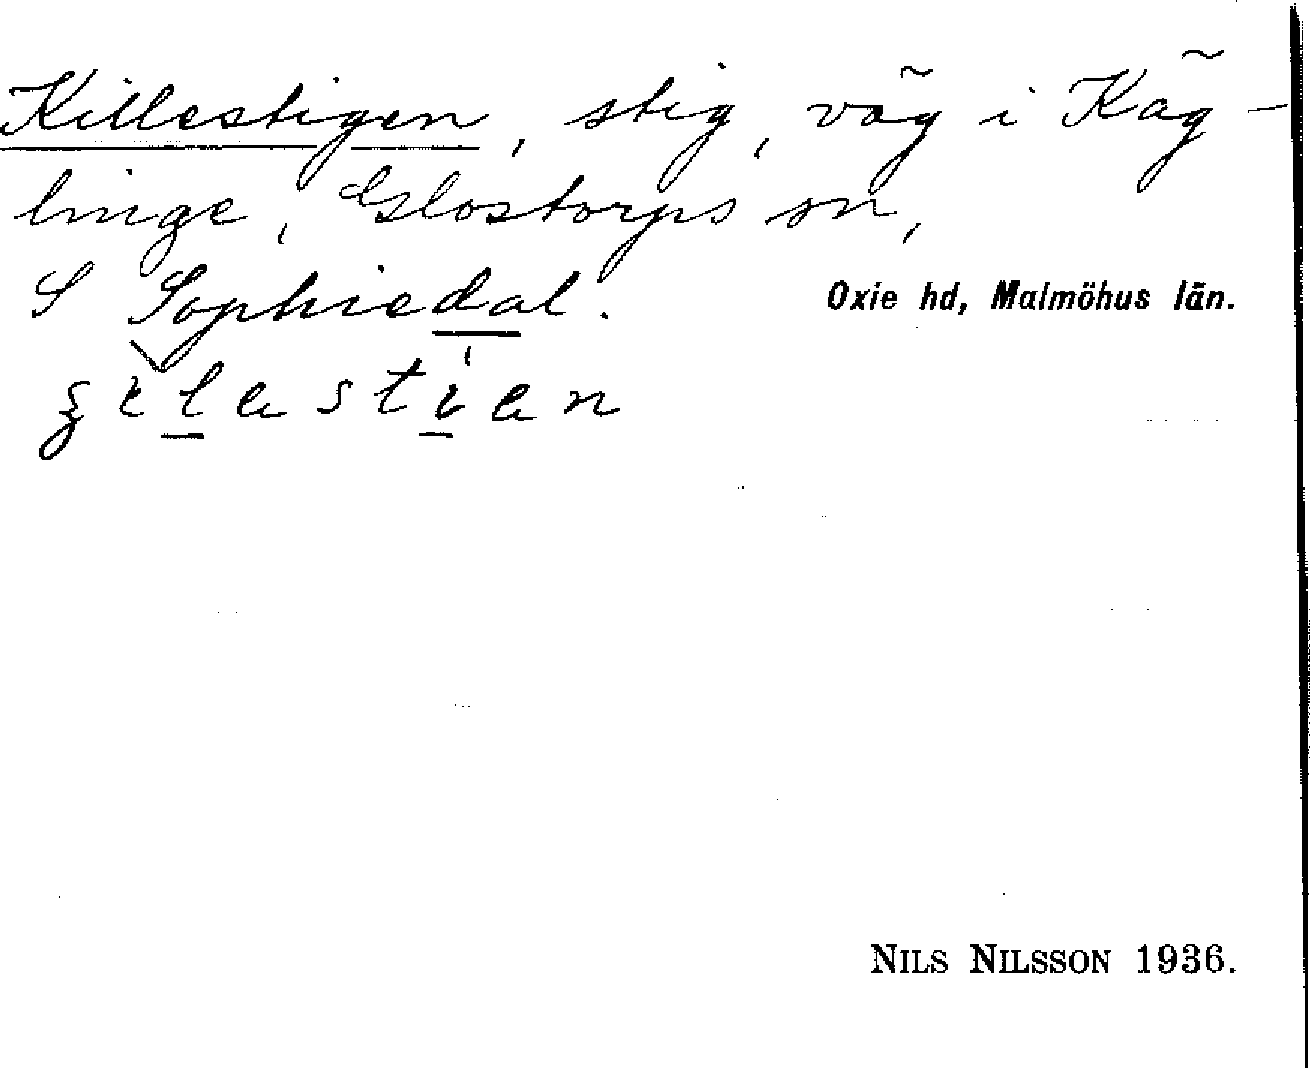 Killestigen, stig, väg i Käg-
linge, Glostorps sn,
S Sophiedal.
Oxie hd, Malmöhus län.
NILS NILSSON 1936.